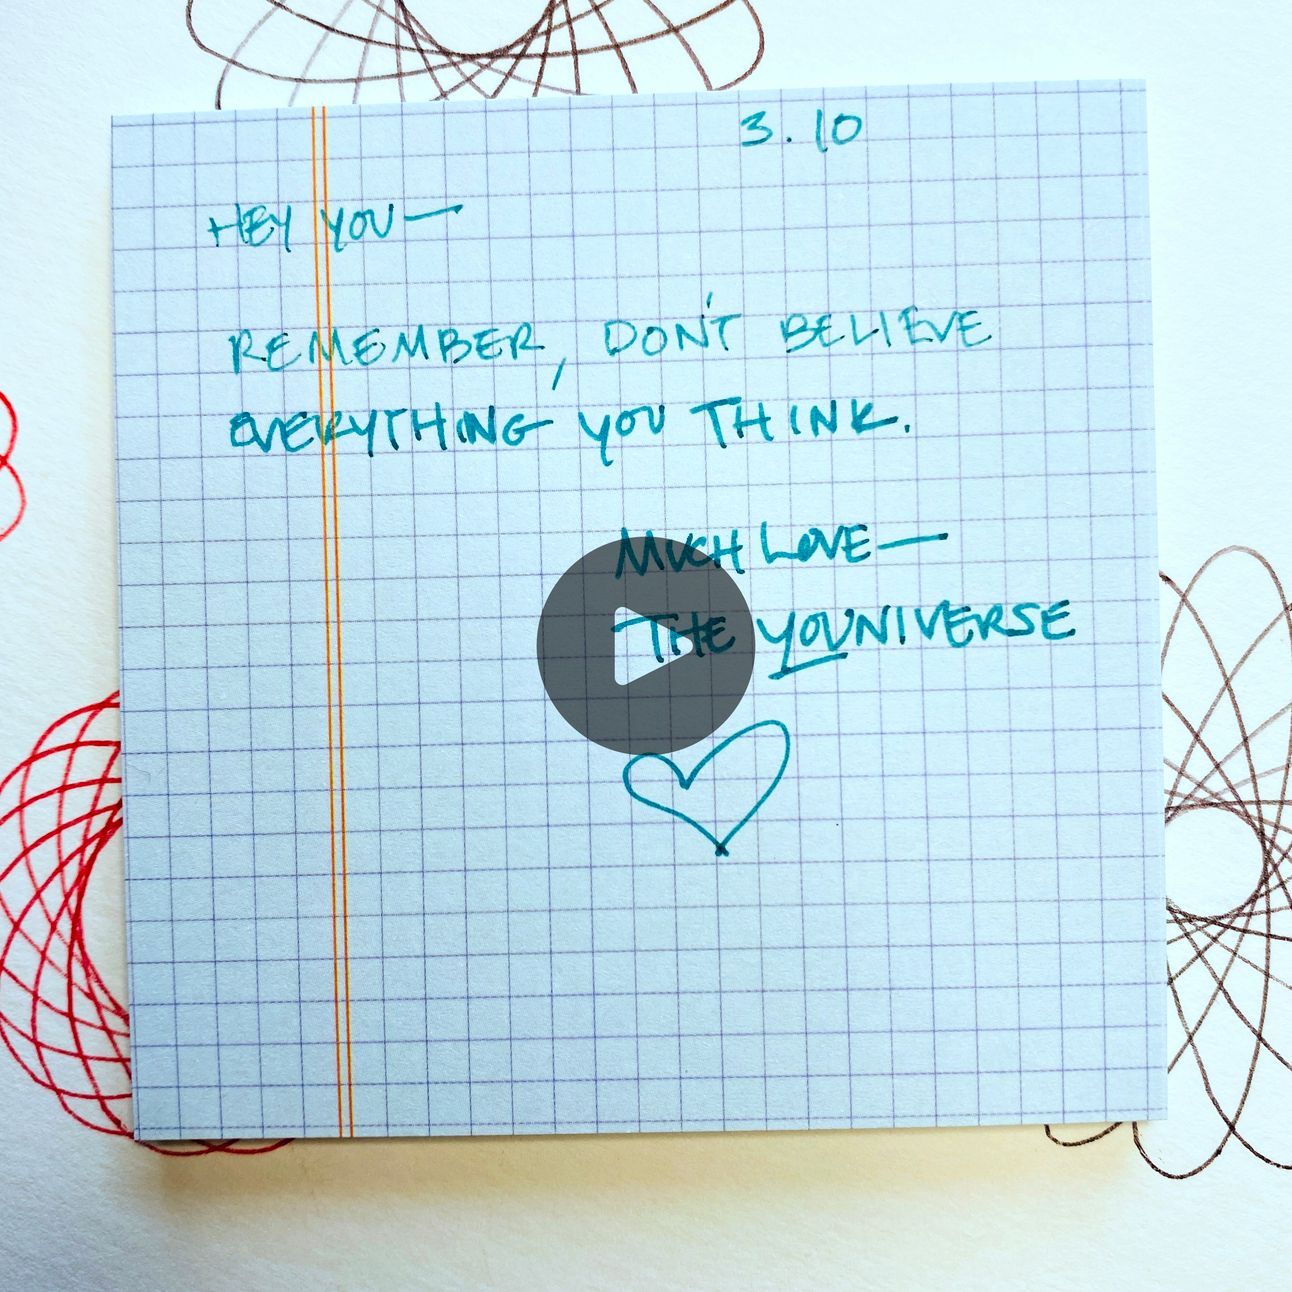 3.10
HEY YOU—
REMEMBER, DON'T BELIEVE
EVERYTHING YOU THINK.
MUCH LOVE—
THE YOUNIVERSE